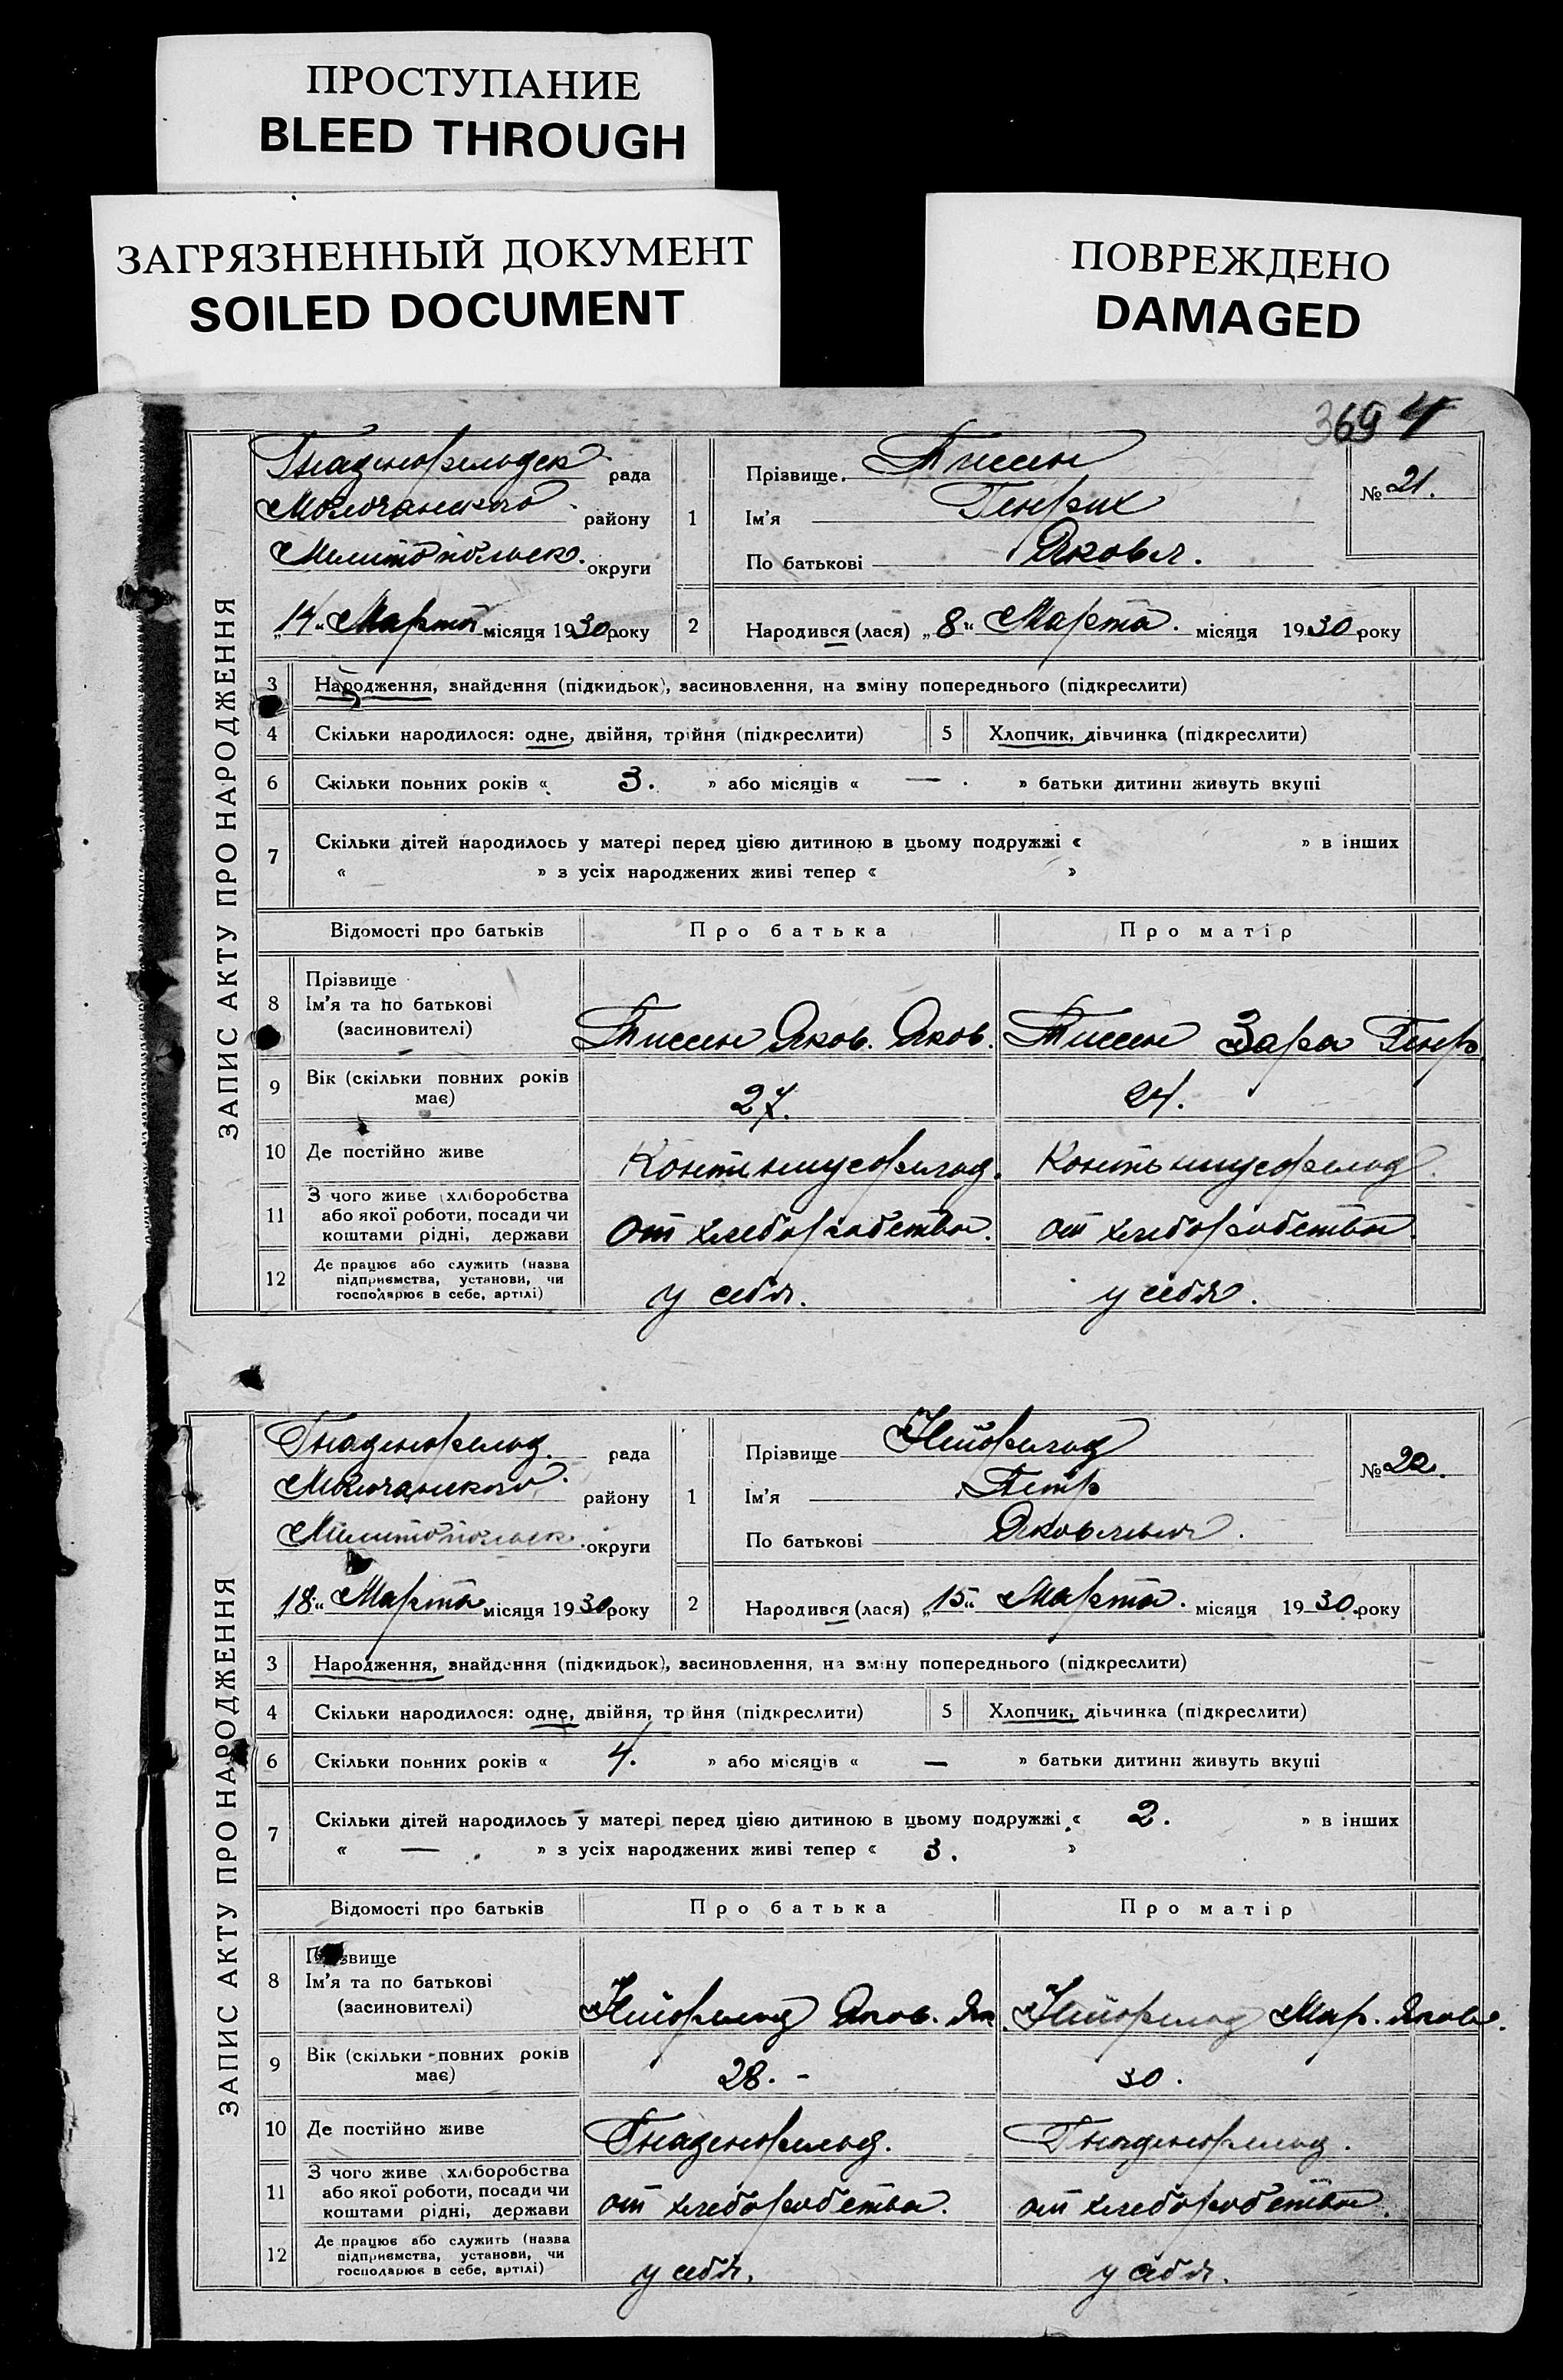 ПРОСТУПАНИЕ
BLEED THROUGH
ЗАГРЯЗНЕННЫЙ ДОКУМЕНТ
SOILED DOCUMENT
ПОВРЕЖДЕНО
DAMAGED
369 4
ЗАПИС АКТУ ПРО НАРОДЖЕННЯ
Гнаденфельдск. рада
Молочанского району
Мелитопольск. округи
„14“ Марта місяця 1930 року
1 Прізвище. Тиссен
Ім'я Генрих
По батькові Яковл.
№ 21.
2 Народився (лася) „8“ Марта. місяця 1930 року
3 Народження, знайдення (підкидьок), засиновлення, на зміну попереднього (підкреслити)
4 Скільки народилося: одне, двійня, трійня (підкреслити) 5 Хлопчик, дівчинка (підкреслити)
6 Скільки повних років « 3. » або місяців « — . » батьки дитини живуть вкупі
7 Скільки дітей народилось у матері перед цією дитиною в цьому подружжі « » в інших
« » з усіх народжених живі тепер « »
Відомості про батьків Про батька Про матір
8 Прізвище
Ім'я та по батькові
(засиновителі)
Тиссен Яков. Яков. Тиссен Зара Генр
9 Вік (скільки повних років
має)
27. 24.
10 Де постійно живе Контениусфельд. Контениусфельд.
11 З чого живе (хліборобства
або якої роботи, посади чи
коштами рідні, держави
от хлеборобства. от хлеборобства.
12 Де працює або служить (назва
підприємства, установи, чи
господарює в себе, артілі)
у себя. у себя.
ЗАПИС АКТУ ПРО НАРОДЖЕННЯ
Гнаденфельд. рада
Молочанского. району
Мелитопольск. округи
„18“ Марта місяця 1930 року
1 Прізвище Нейфельд
Ім'я Петр
По батькові
№ 22.
2 Народився (лася) „15“ Марта. місяця 1930. року
3 Народження, знайдення (підкидьок), засиновлення, на зміну попереднього (підкреслити)
4 Скільки народилося: одне, двійня, трійня (підкреслити) 5 Хлопчик, дівчинка (підкреслити)
6 Скільки повних років « 4. » або місяців « — » батьки дитини живуть вкупі
7 Скільки дітей народилось у матері перед цією дитиною в цьому подружжі « 2. » в інших
« — . » з усіх народжених живі тепер « 3. »
Відомості про батьків Про батька Про матір
8 Прізвище
Ім'я та по батькові
(засиновителі)
Нейфельд Яков. Як. Нейфельд Мар. Яковл.
9 Вік (скільки повних років
має)
28. - 30.
10 Де постійно живе Гнаденфельд. Гнаденфельд.
11 З чого живе (хліборобства
або якої роботи, посади чи
коштами рідні, держави
от хлеборобства. от хлеборобства.
12 Де працює або служить (назва
підприємства, установи, чи
господарює в себе, артілі)
у себя. у себя.